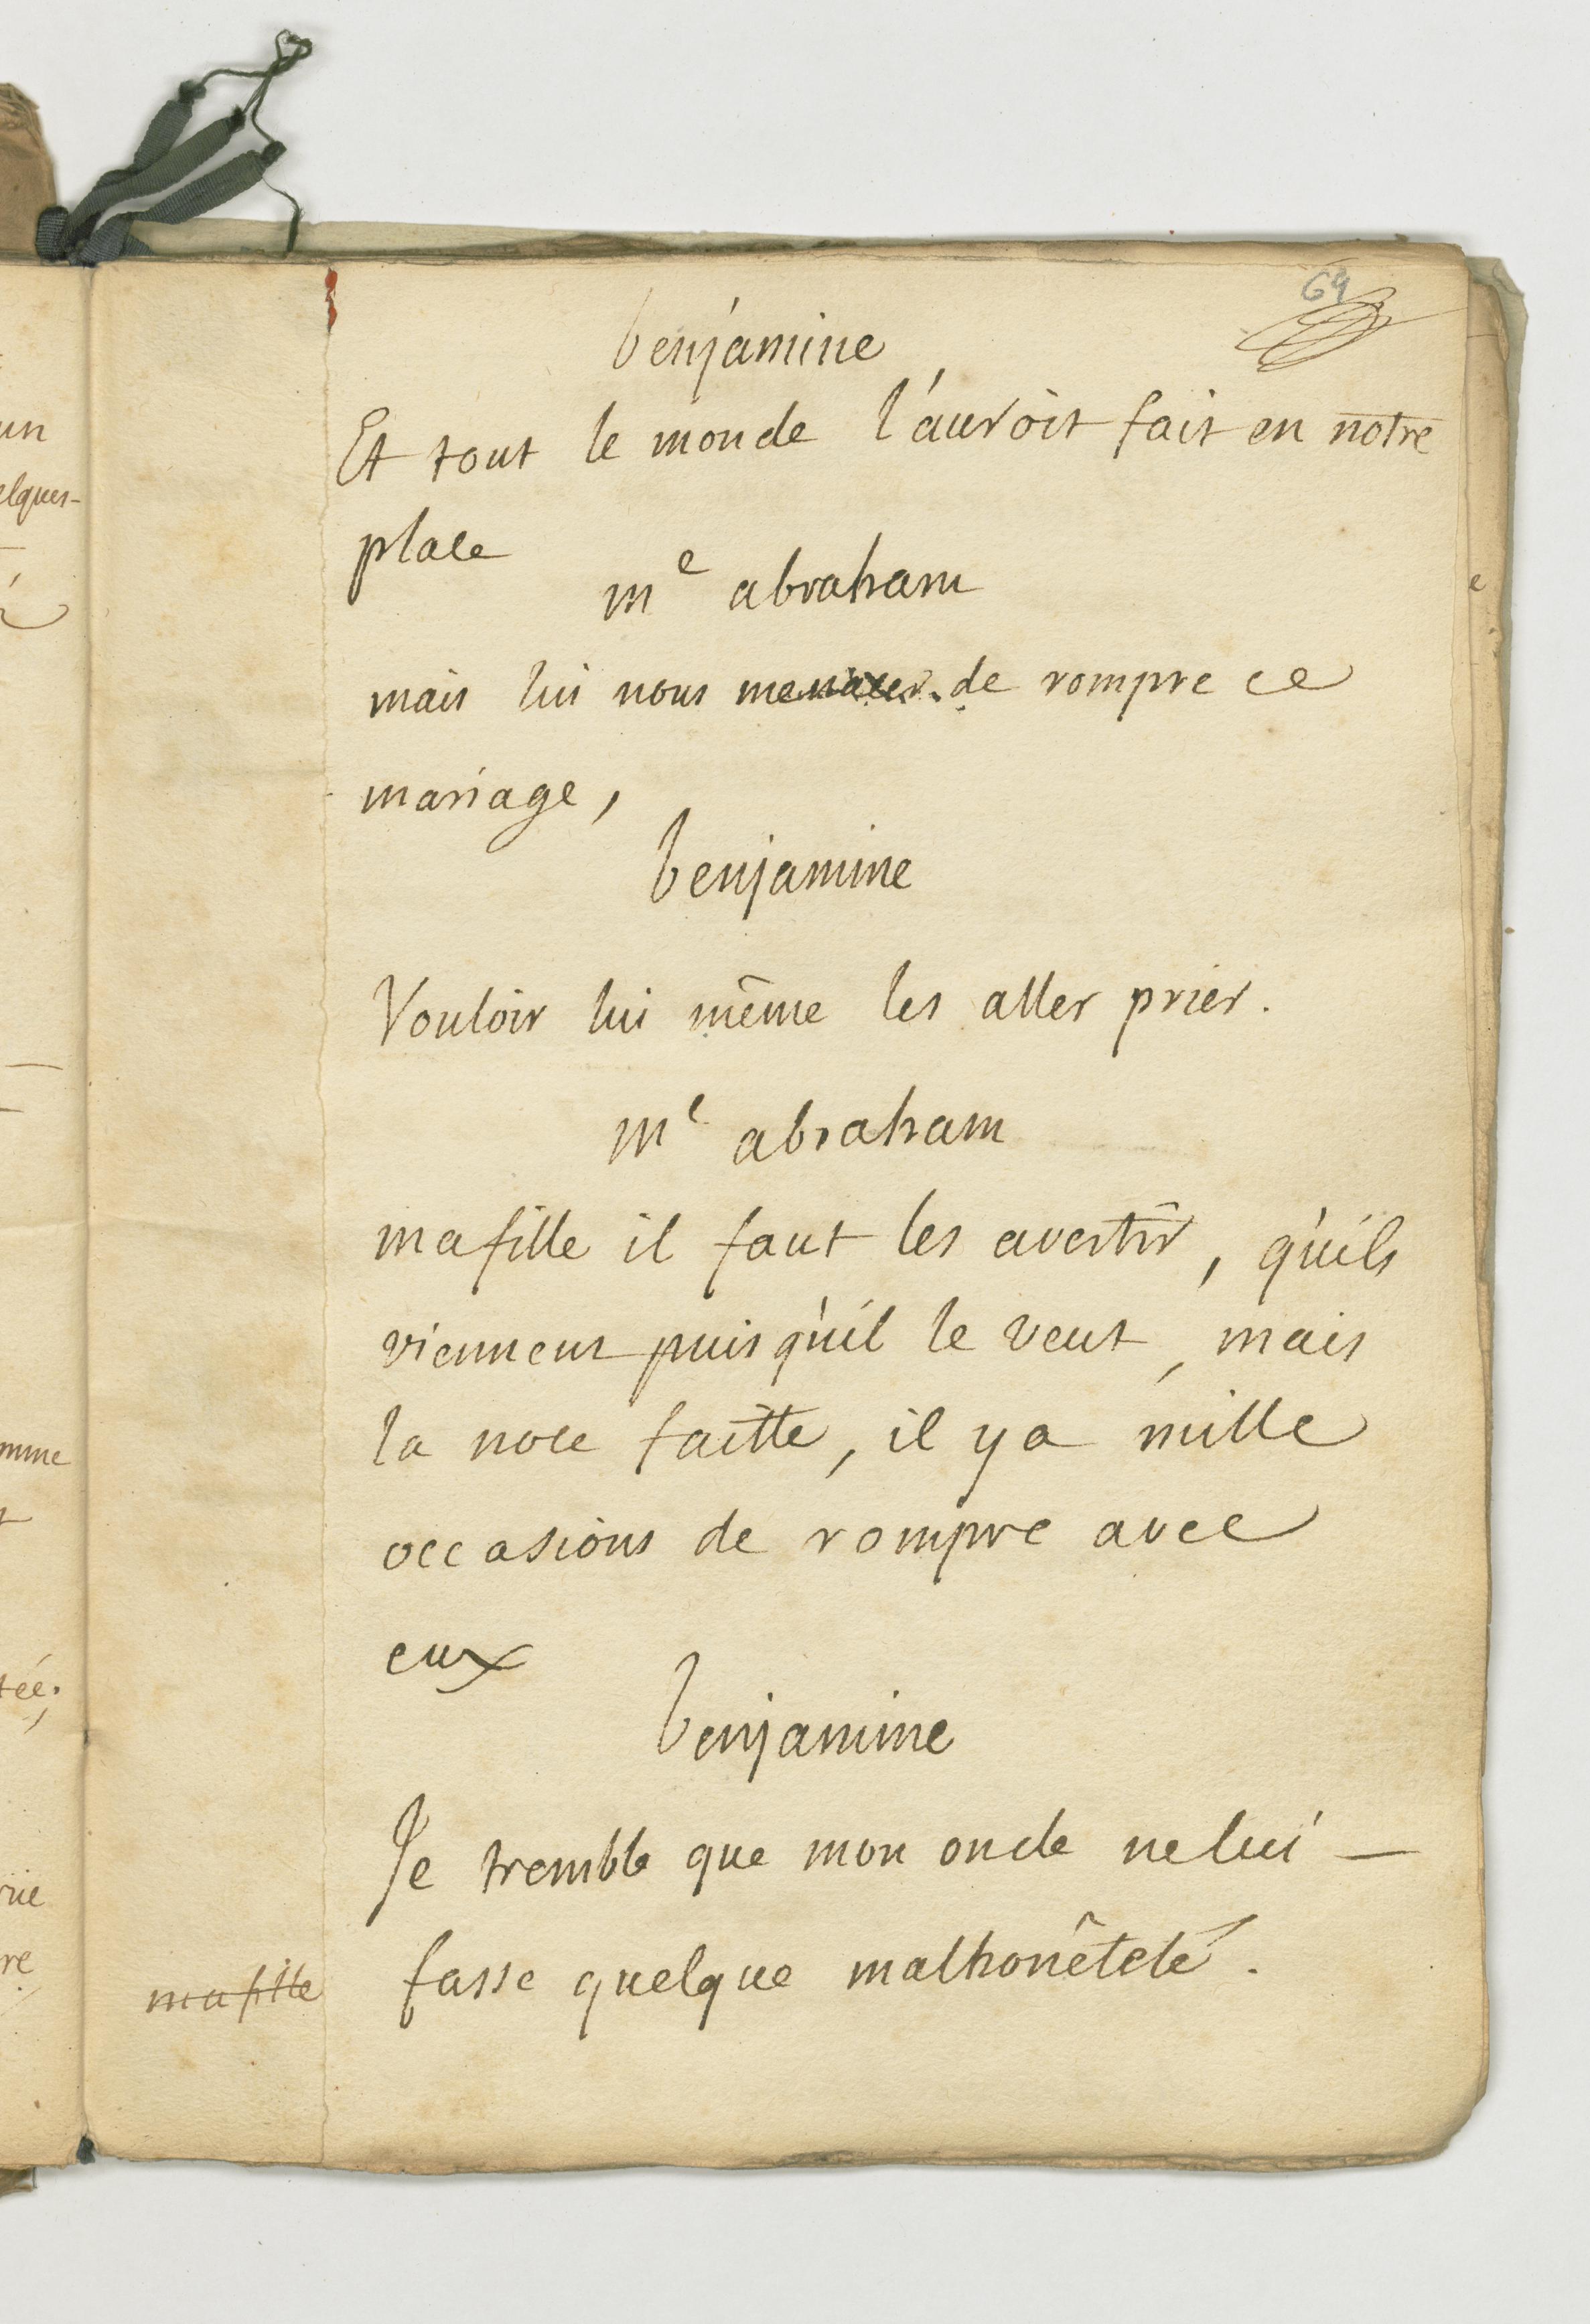 64
benjamine
Et tout le monde l'auroit fait en notre
place
me abraham
mais lui nous menacer de rompre ce
mariage,
benjamine
Vouloir lui même les aller prier.
me abraham
mafille il faut les avertir, qu'ils
viennent puisqu'il le veut, mais
la noce faitte, il ya mille
occasions de rompre avec
eux
benjamine
Je tremble que mon oncle nelui —
mafille
fasse quelque malhonêteté.